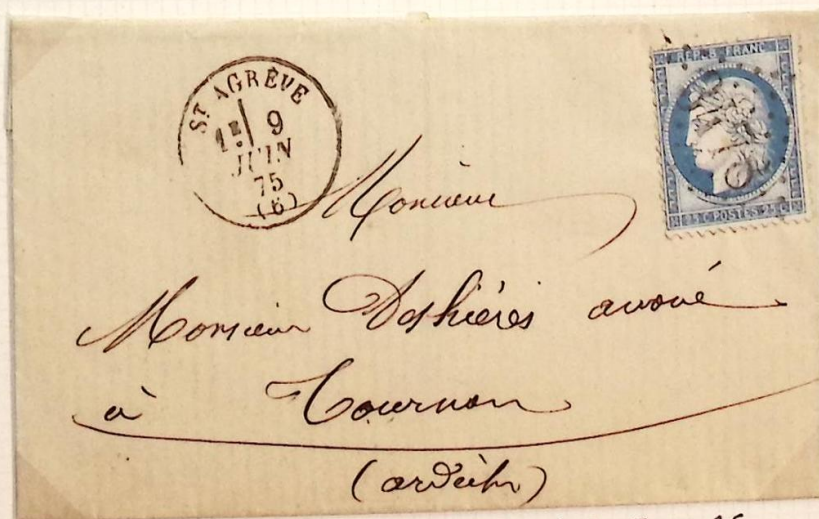 ST AGRÈVE
1E 9
JUIN
75
(6)
REPUB FRANC
25 C POSTES 25 C
Monsieur
Monsieur avoué
à Tournon
(ardèche)